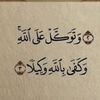 ٢ وَتَوَكَّلْ عَلَى ٱللَّهِ ۚ
وَكَفَىٰ بِٱللَّهِ وَكِيلًا ٣